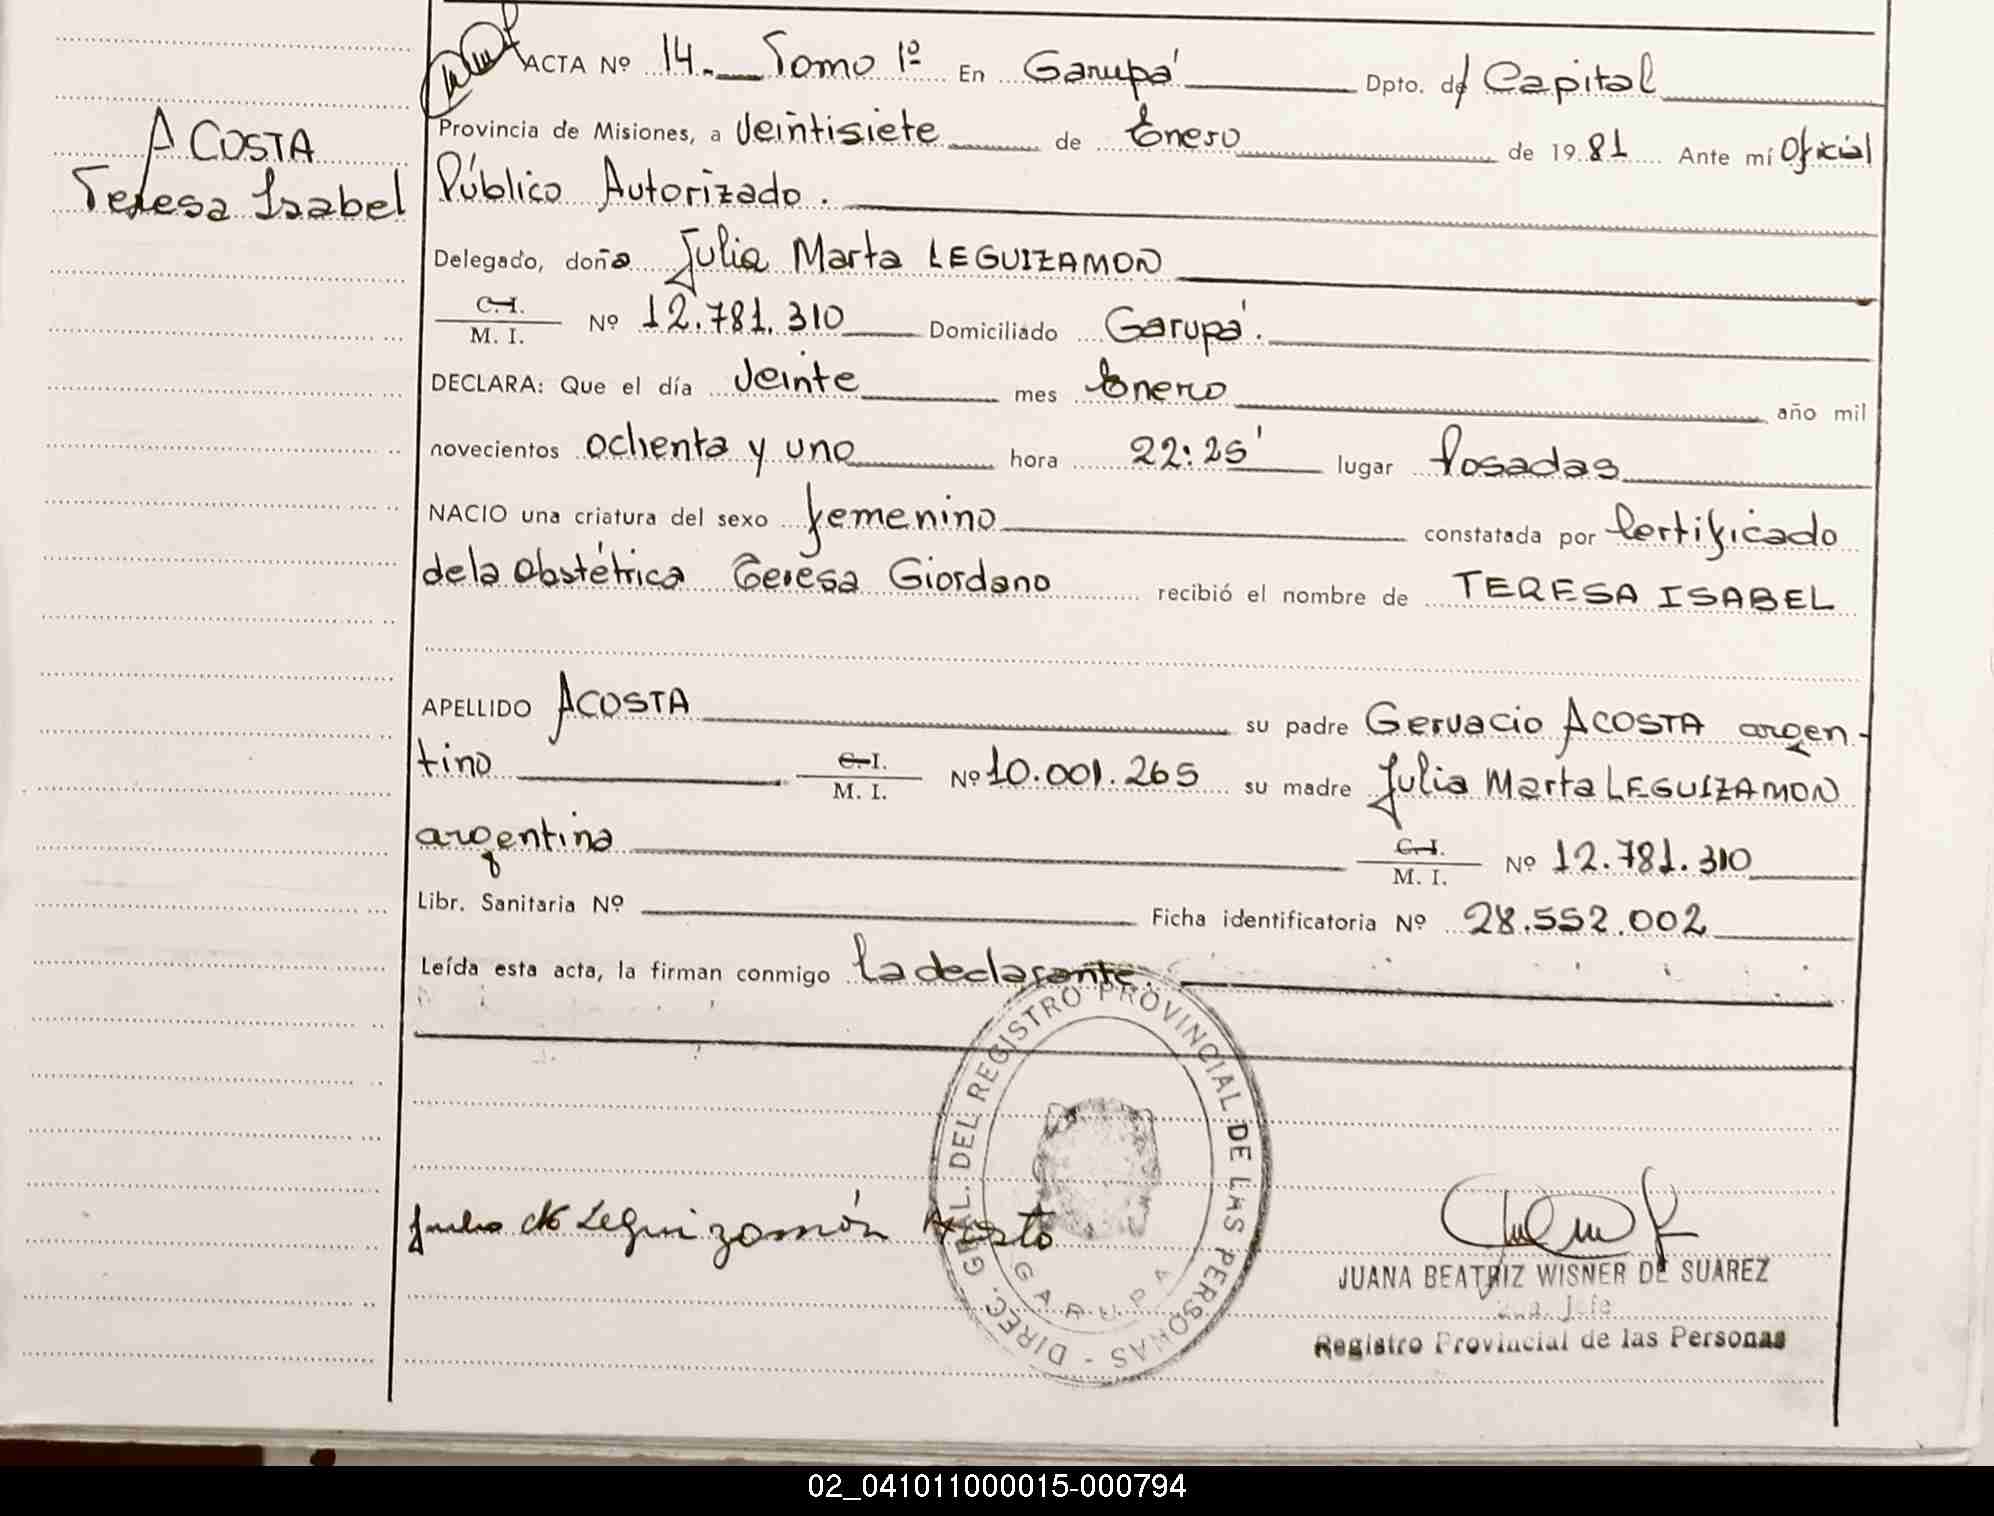 ACTA Nº 14. Tomo 1º En Garupá Dpto. de Capital
ACOSTA
Teresa Isabel
Provincia de Misiones, a Veintisiete de Enero de 1981 Ante mí Oficial
Público Autorizado.
Delegado, doña Julia Marta LEGUIZAMON
C. I.
M. I. Nº 12.781.310 Domiciliado Garupá.
DECLARA: Que el día Veinte mes Enero año mil
novecientos ochenta y uno hora 22:25' lugar Posadas
NACIO una criatura del sexo femenino constatada por Certificado
de la Obstétrica Teresa Giordano recibió el nombre de TERESA ISABEL
APELLIDO ACOSTA su padre Gervacio ACOSTA argen-
tino C. I. M. I. Nº 10.001.265 su madre Julia Marta LEGUIZAMON
argentina C. I. M. I. Nº 12.781.310
Libr. Sanitaria Nº Ficha identificatoria Nº 28.552.002
Leída esta acta, la firman conmigo la declarante.
DIREC. GRAL. DEL REGISTRO PROVINCIAL DE LAS PERSONAS -
GARUPA
Leguizamón
JUANA BEATRIZ WISNER DE SUAREZ
Jefe
Registro Provincial de las Personas
02_041011000015-000794